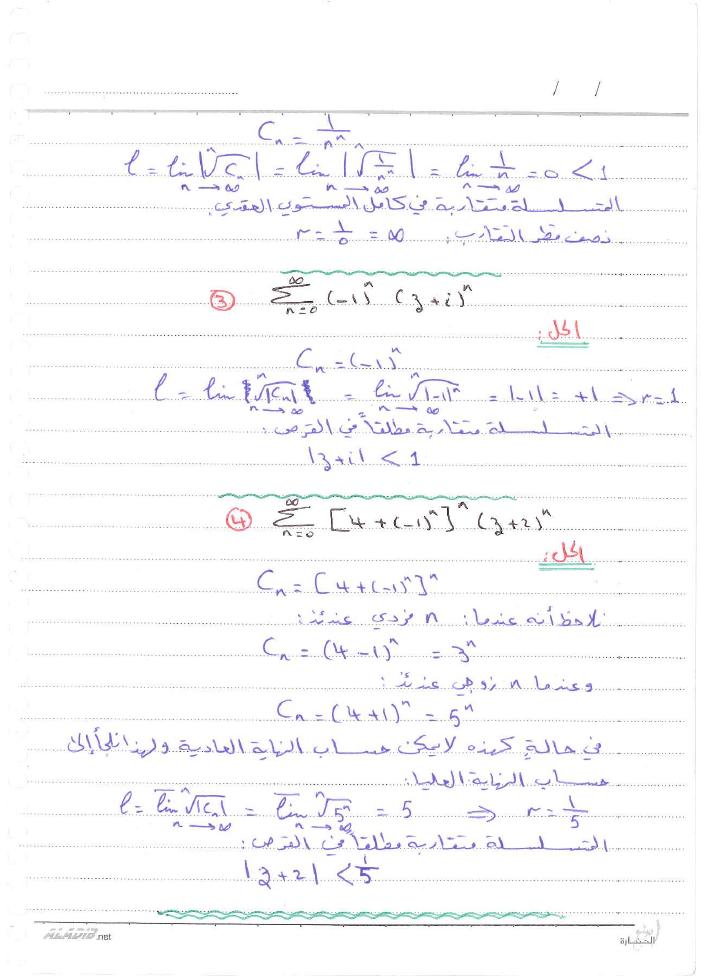 / /
Cₙ = 1/nⁿ
l = lim_{n→∞} |ⁿ√Cₙ| = lim_{n→∞} |ⁿ√(1/nⁿ)| = lim_{n→∞} 1/n = 0 < 1
المتسلسلة متقاربة في كامل المستوي العقدي.
نصف قطر التقارب: r = 1/0 = ∞
③ ∑_{n=0}^{∞} (-1)ⁿ (z+i)ⁿ
الحل:
Cₙ = (-1)ⁿ
l = lim_{n→∞} ⁿ√|Cₙ| = lim_{n→∞} ⁿ√|-1|ⁿ = |-1| = +1 ⇒ r = 1
المتسلسلة متقاربة مطلقاً في القرص:
|z+i| < 1
④ ∑_{n=0}^{∞} [4+(-1)ⁿ]ⁿ (z+2)ⁿ
الحل:
Cₙ = [4+(-1)ⁿ]ⁿ
نلاحظ أنه عندما: n فردي عندئذ:
Cₙ = (4-1)ⁿ = 3ⁿ
وعندما n زوجي عندئذ:
Cₙ = (4+1)ⁿ = 5ⁿ
في حالةٍ كهذه لا يمكن حساب النهاية العادية ولهذا نلجأ إلى
حساب النهاية العليا:
l = l̅i̅m̅_{n→∞} ⁿ√|Cₙ| = l̅i̅m̅_{n→∞} ⁿ√5ⁿ = 5 ⇒ r = 1/5
المتسلسلة متقاربة مطلقاً في القرص:
|z+2| < 1/5
ALADIB.net
الحضارة